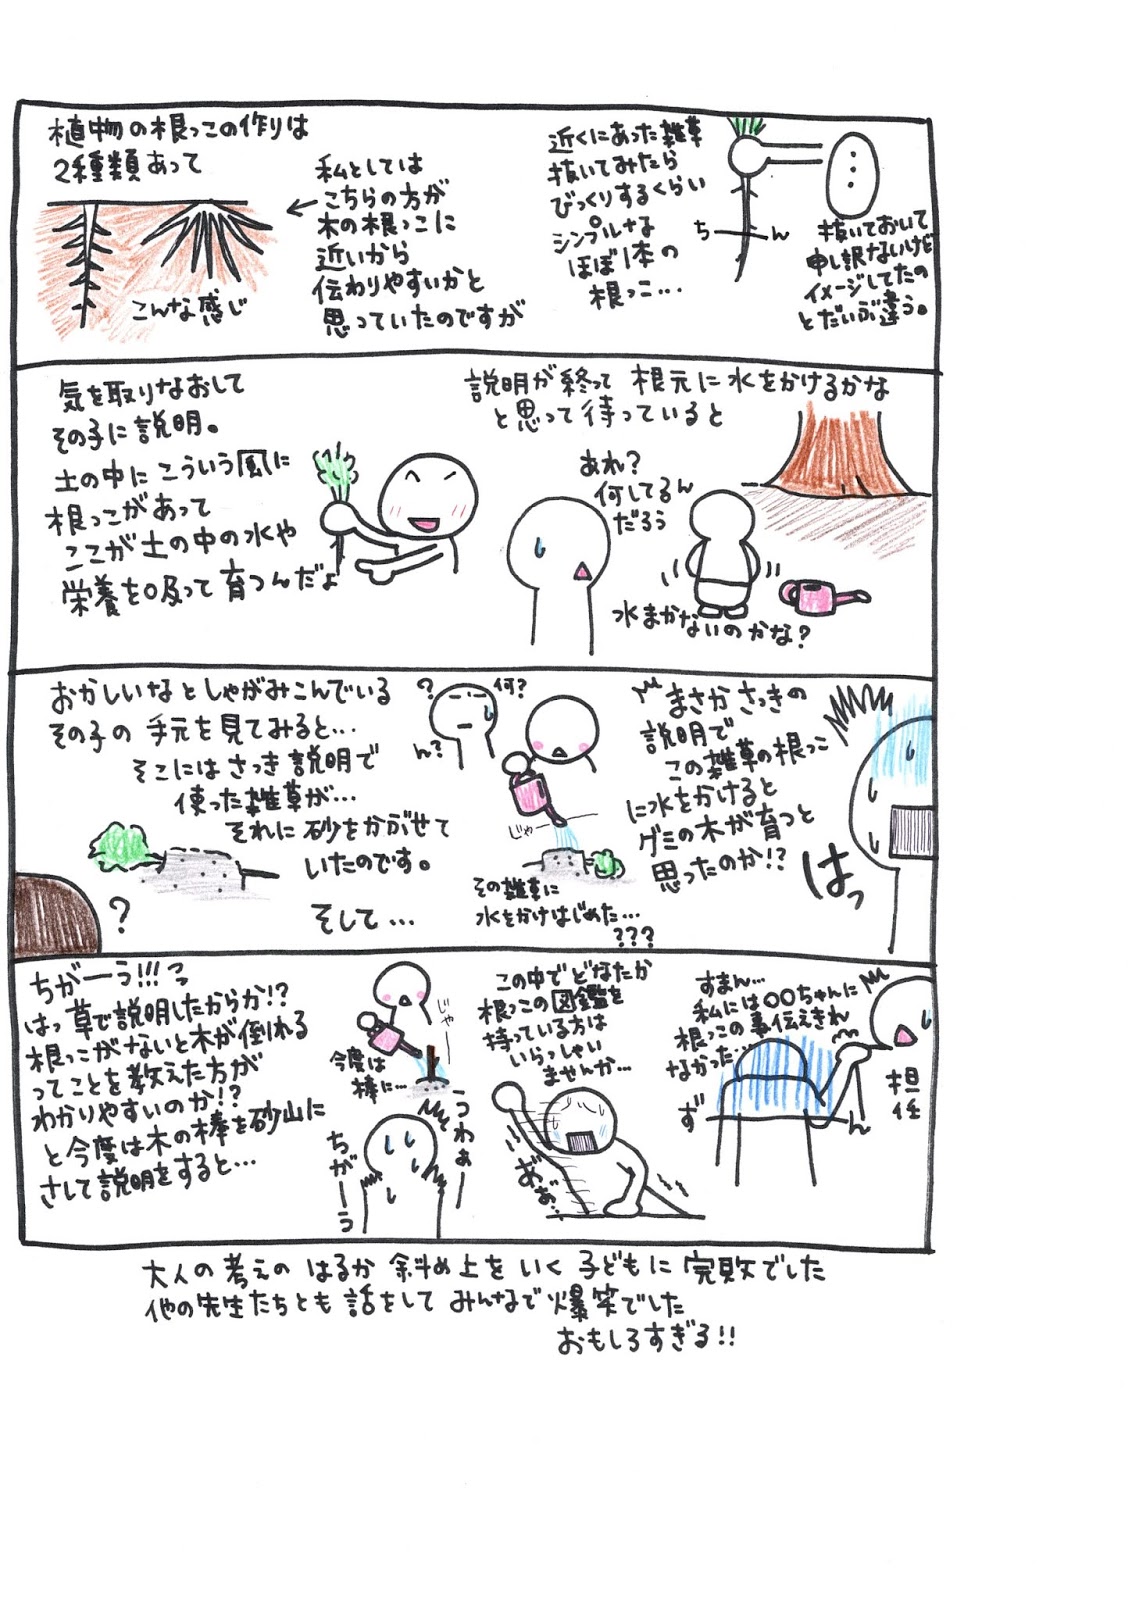 植物の根っこの作りは
2種類あって
こんな感じ
私としては
こちらの方が
木の根っこに
近いから
伝わりやすいかと
思っていたのですが
近くにあった雑草
抜いてみたら
びっくりするくらい
シンプルな
ほぼ1本の
根っこ...
ちーん
抜いておいて
申し訳ないけど
イメージしてたの
とだいぶ違う。
気を取りなおして
その子に説明。
土の中にこういう風に
根っこがあって
ここが土の中の水や
栄養を吸って育つんだよ
説明が終って根元に水をかけるかな
と思って待っていると
あれ?
何してるん
だろう
水まかないのかな?
おかしいなとしゃがみこんでいる
その子の手元を見てみると...
そこにはさっき説明で
使った雑草が...
それに砂をかぶせて
いたのです。
?
そして...
?
何?
ん?
じゃー
その雑草に
水をかけはじめた...
???
まさかさっきの
説明で
この雑草の根っこ
に水をかけると
グミの木が育つと
思ったのか!?
はっ
ちがーう!!!
はっ草で説明したからか!?
根っこがないと木が倒れる
ってことを教えた方が
わかりやすいのか!?
と今度は木の棒を砂山に
さして説明をすると...
じゃー
今度は
棒に...
うわぁー
ちがーう
この中でどなたか
根っこの図鑑を
持っている方は
いらっしゃい
ませんか...
あ゛ぁ゛...
すまん...
私には〇〇ちゃんに
根っこの事伝えきれ
なかった...
ずーん
担任
大人の考えのはるか斜め上をいく子どもに完敗でした
他の先生たちとも話をしてみんなで爆笑でした
おもしろすぎる!!